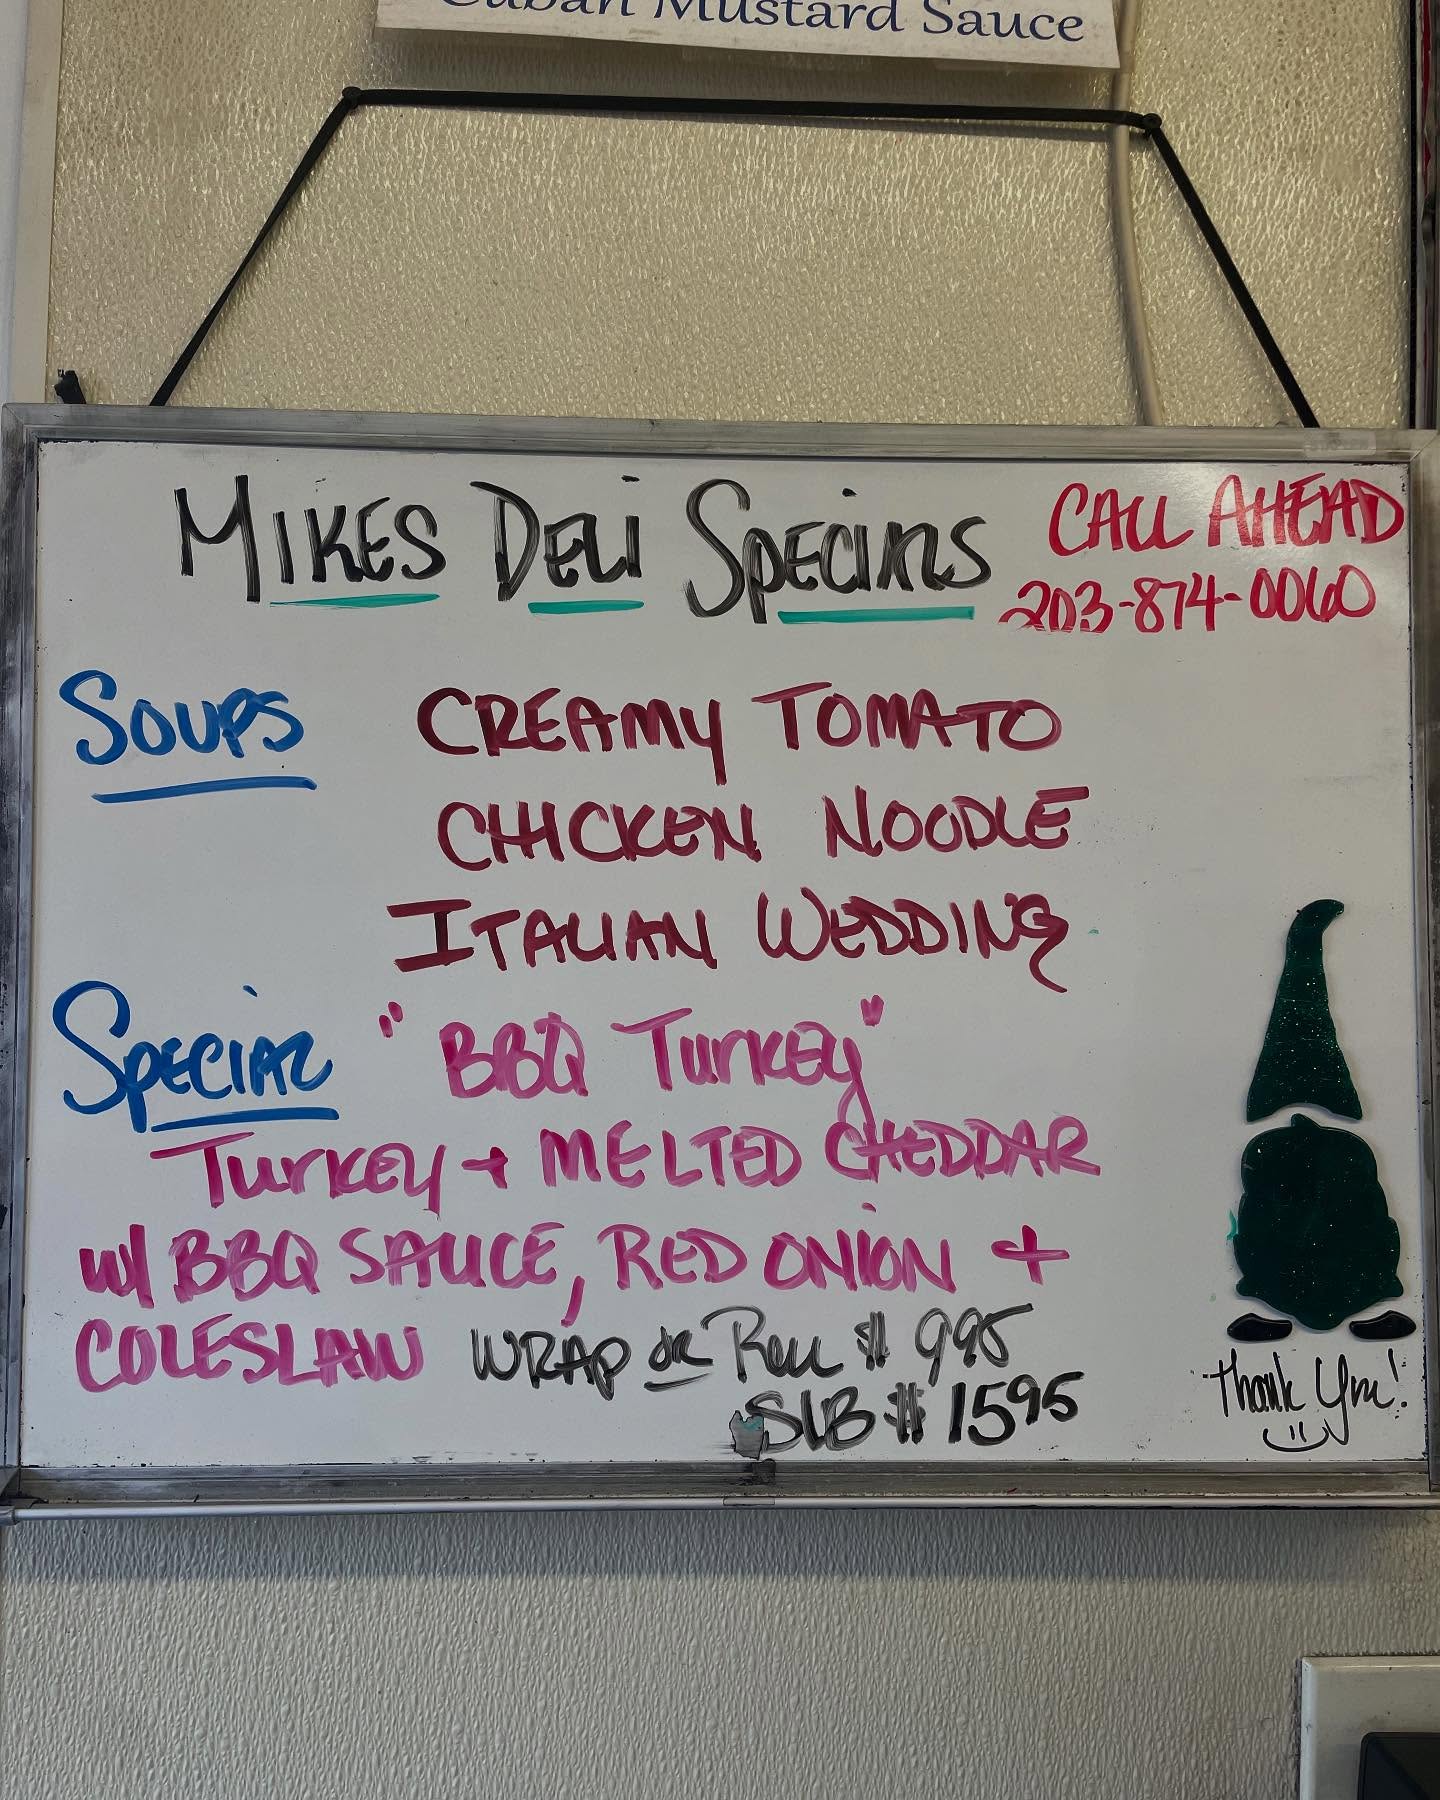 Cuban Mustard Sauce
MIKES DELI SPECIALS
CALL AHEAD
203-874-0060
SOUPS CREAMY TOMATO
CHICKEN NOODLE
ITALIAN WEDDING
SPECIAL "BBQ TURKEY"
TURKEY + MELTED CHEDDAR
w/ BBQ SAUCE, RED ONION +
COLESLAW WRAP OR ROLL $ 995
SUB $ 1595
Thank You!